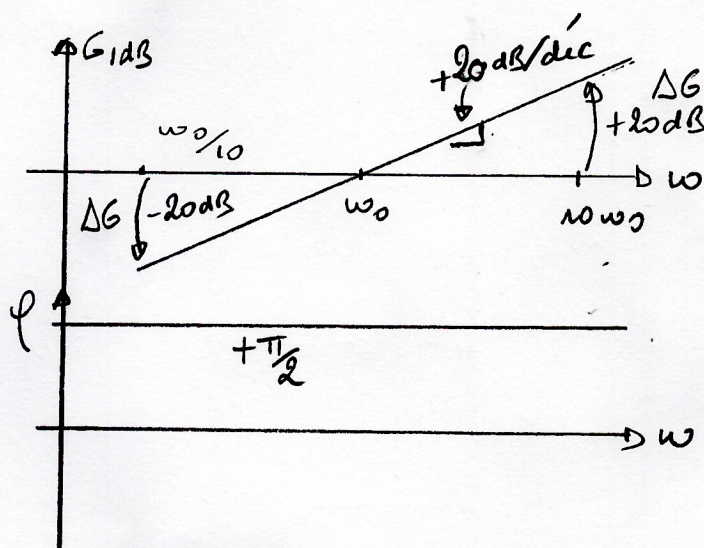 G1dB
+20dB/déc
ΔG
+20dB
ω0/10
ΔG -20dB
ω0
10ω0
ω
φ
+π/2
ω